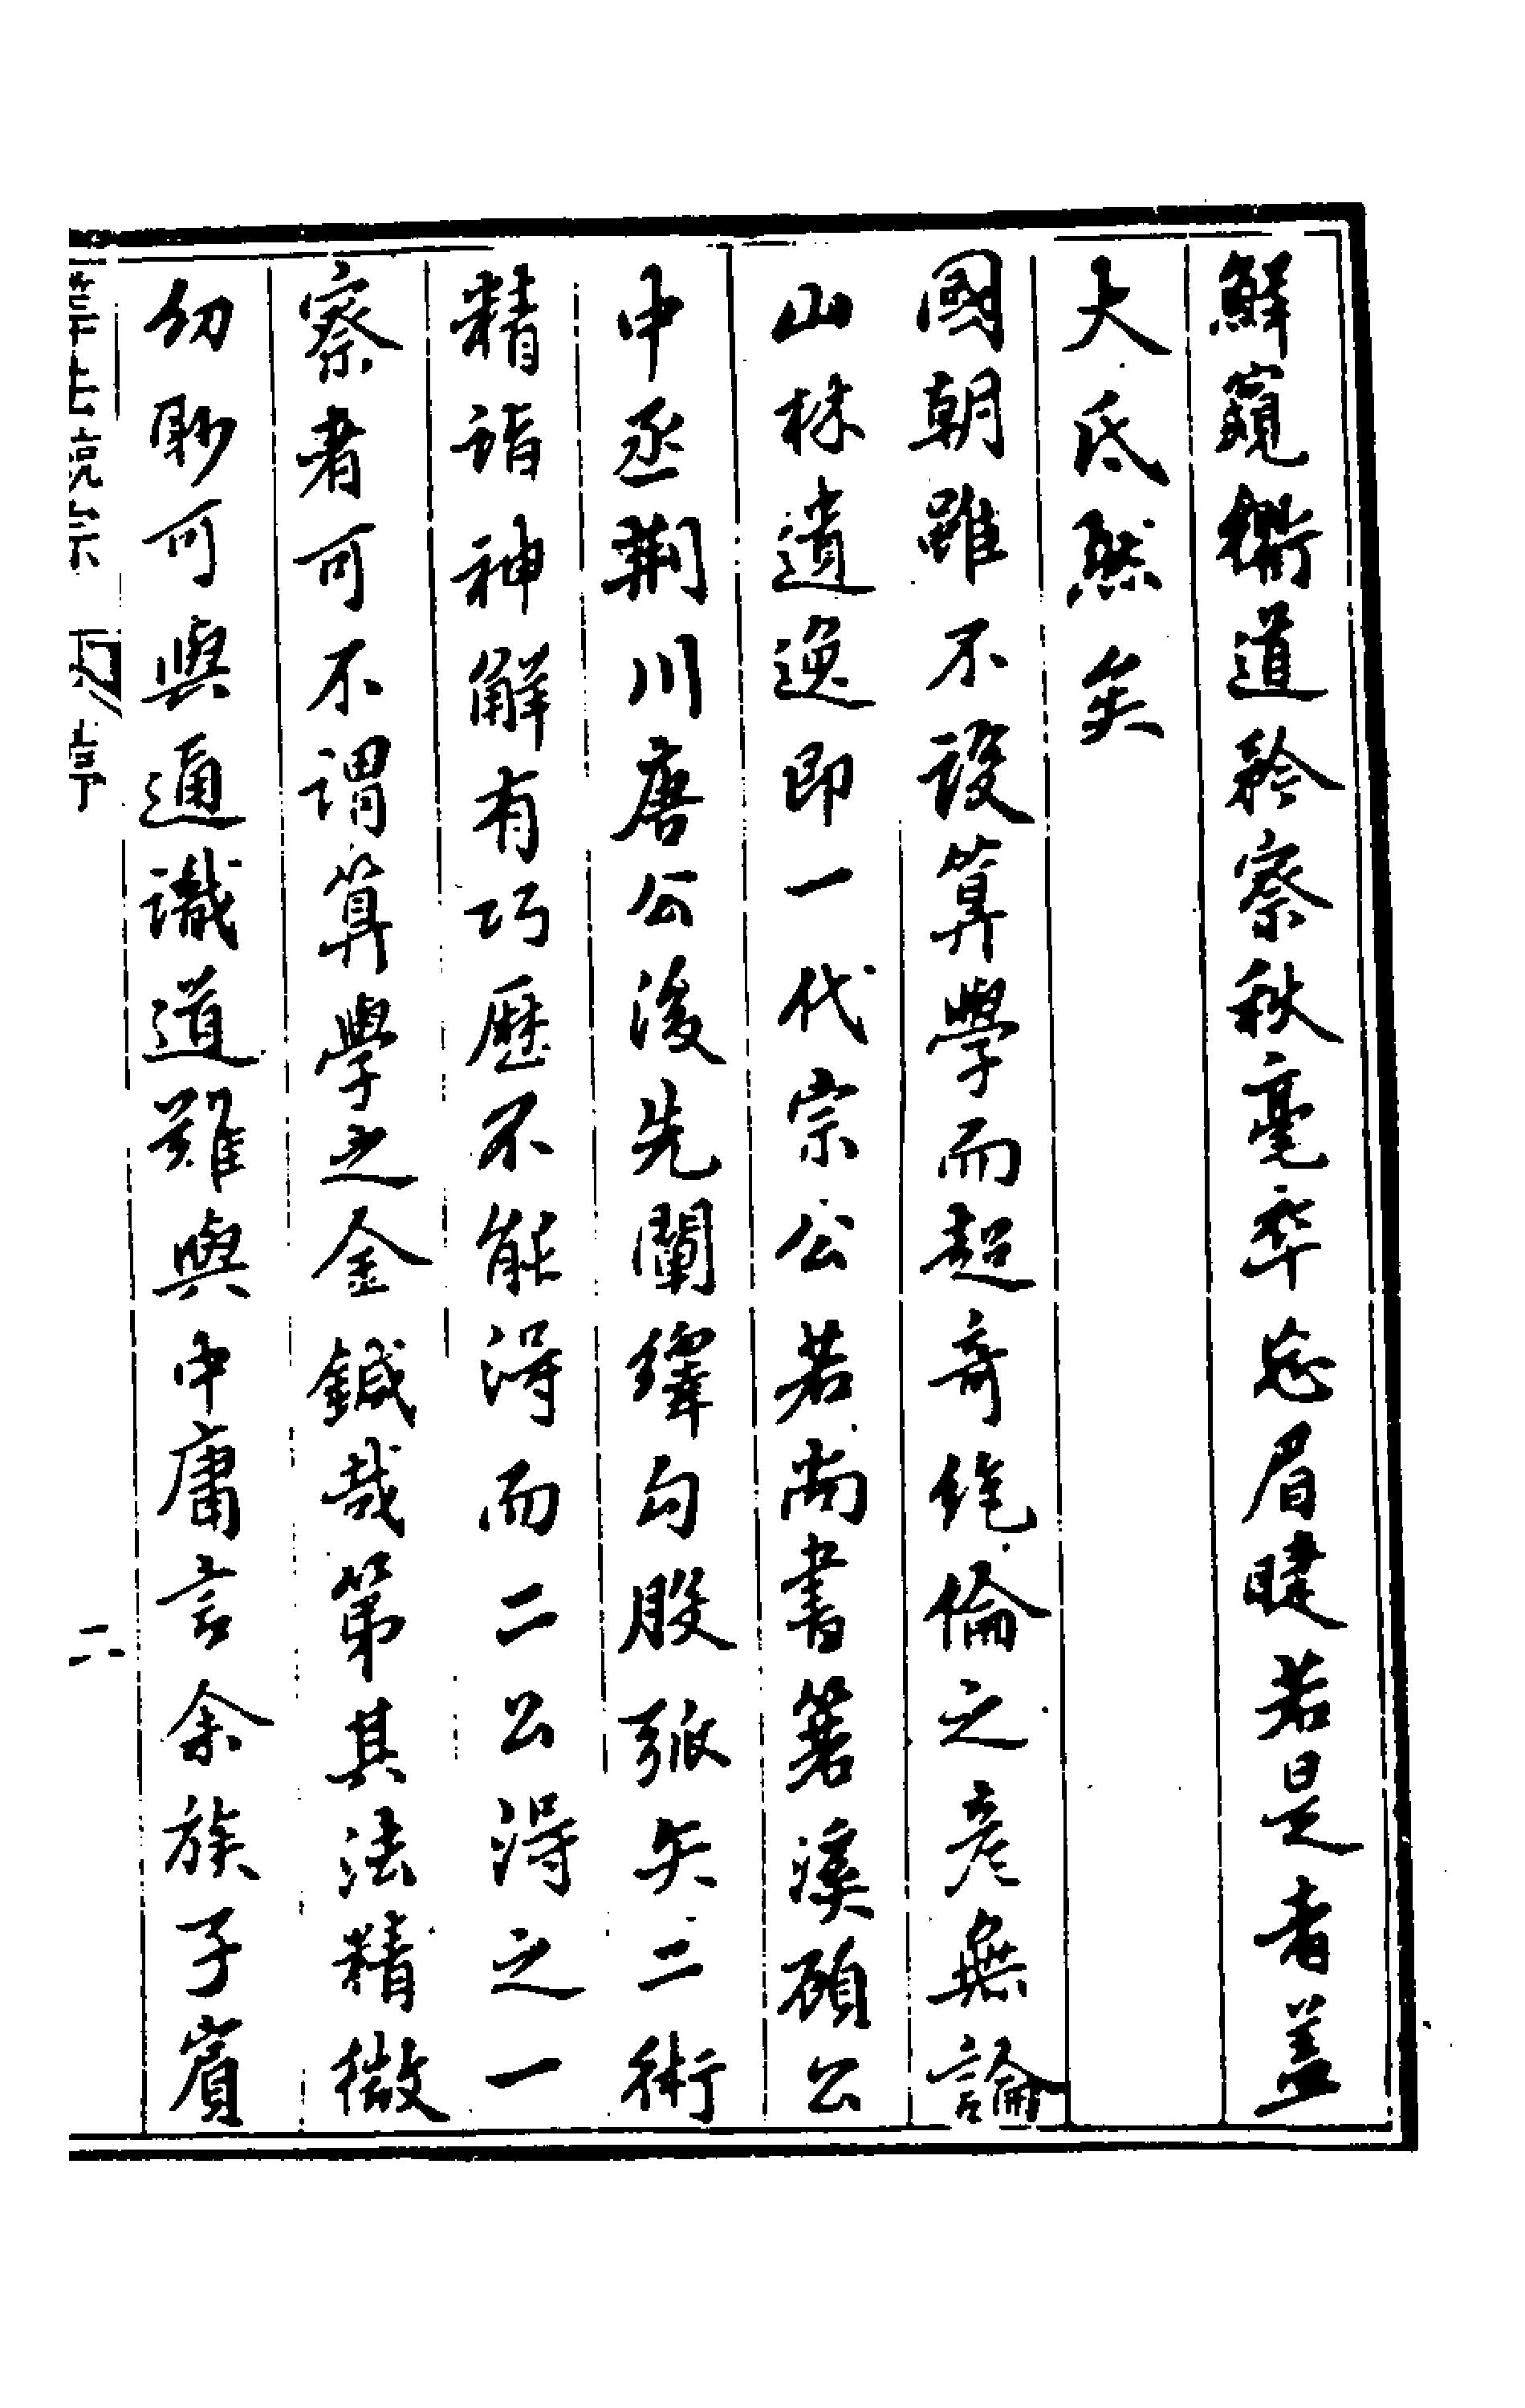 鮮窺衛道矜察秋毫卒忘眉睫若是者蓋
大氐然矣
國朝雖不設算學而超奇絕倫之彥無論
山林遺逸即一代宗公若尚書箬溪顧公
中丞荊川唐公後先闡繹勾股弧矢二術
精詣神解有巧歷不能得而二公得之一
察者可不謂算學之金鍼哉第其法精微
幻眇可與通識道難與中庸言余族子賓
算法統宗 序 二